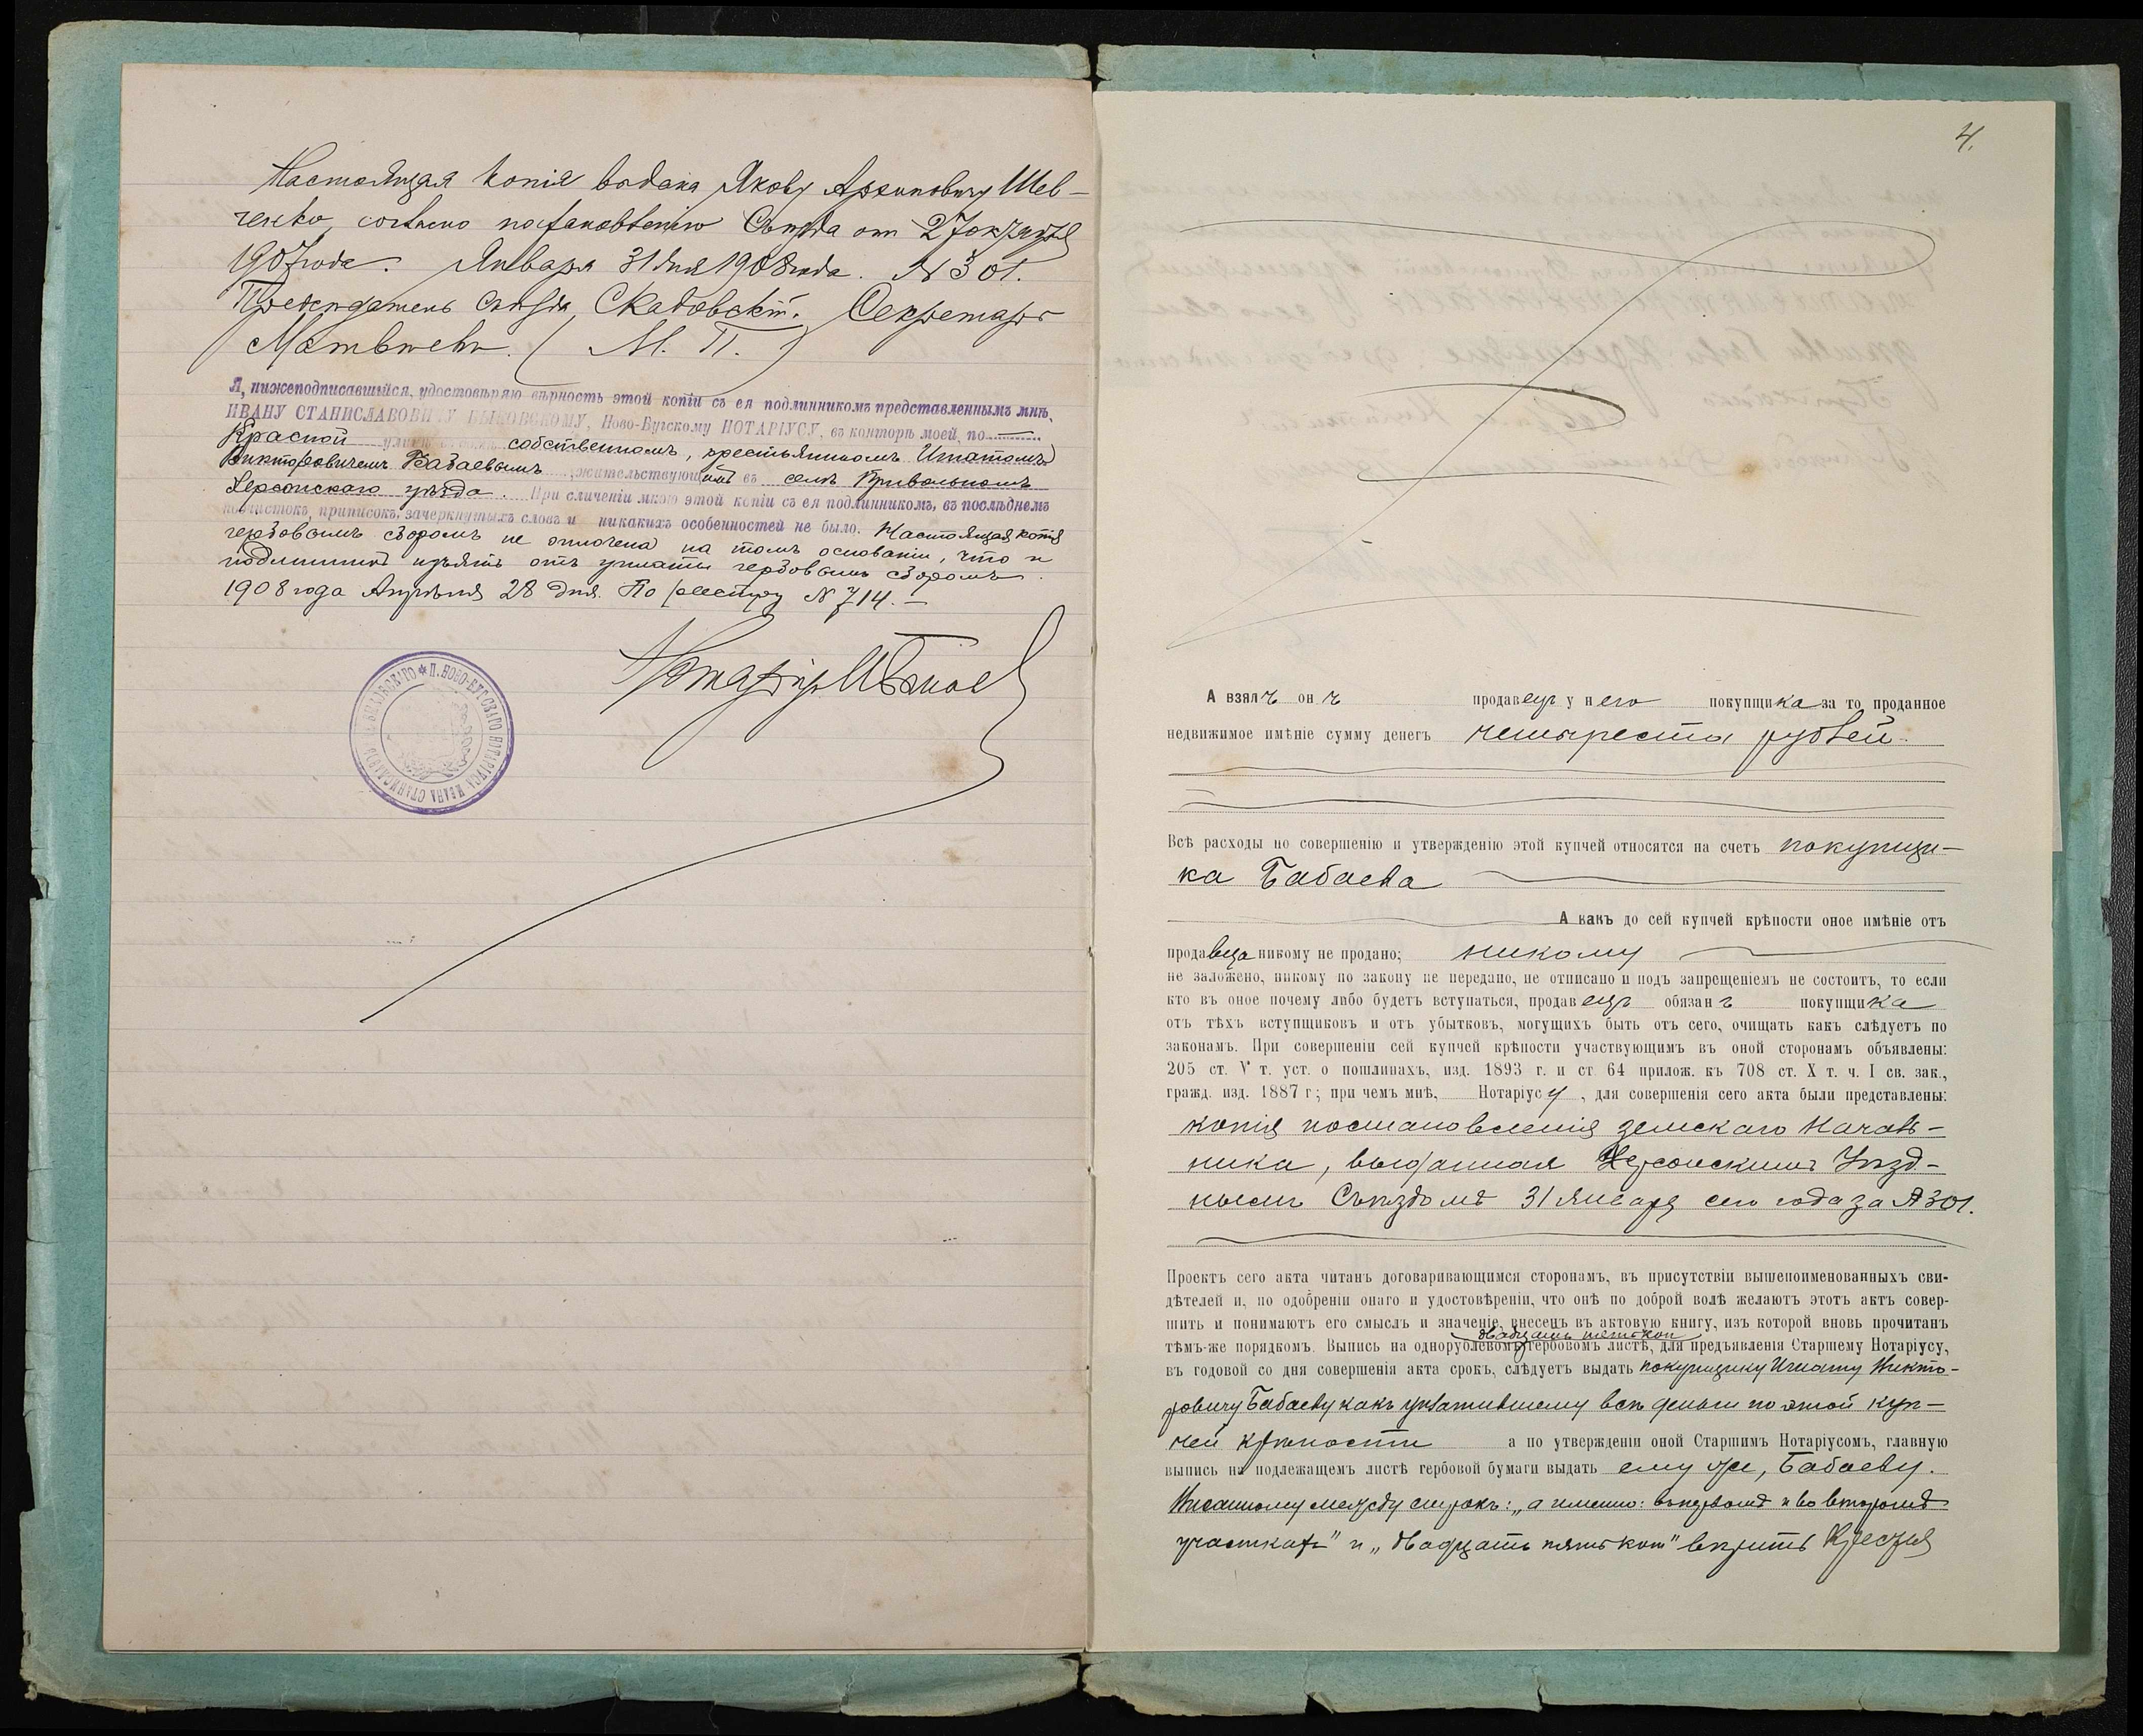 Настоящая копія выдана Якову Архиповичу Шев-
ченко, согласно постановленію Съѣзда от 27 октября
1907 года. Января 31 дня 1908 года. № 301.
Предсѣдатель Съѣзда Скадовскій. Секретарь
Матвѣевъ. (М. П.)
Я, нижеподписавшійся, удостовѣряю вѣрность этой копіи съ ея подлинникомъ представленнымъ мнѣ,
ИВАНУ СТАНИСЛАВОВИЧУ БЫКОВСКОМУ, Ново-Бугскому НОТАРІУСУ, въ конторѣ моей, по
Красной улицѣ собственномъ, крестьяниномъ Игнатомъ
Викторовичемъ Бабаевымъ, жительствующимъ въ селѣ Привольномъ
Херсонскаго уѣзда. При сличеніи мною этой копіи съ ея подлинникомъ, въ послѣднемъ
подчистокъ, приписокъ, зачеркнутыхъ словъ и никакихъ особенностей не было. Настоящая копія
гербовымъ сборомъ не оплочена на томъ основаніи, что и
подлинникъ изъятъ отъ уплаты гербовымъ сборомъ.
1908 года Апрѣля 28 дня. По реестру № 714.—
Нотаріус
* П. НОВО-БУГСКАГО НОТАРІУСА ИВАНА СТАНИСЛАВО БЫКОВСКАГО
4.
А взялъ онъ продавецъ у него покупщика за то проданное
недвижимое имѣніе сумму денегъ четыреста рублей.
Всѣ расходы по совершенію и утвержденію этой купчей относятся на счетъ покупщи-
ка Бабаева
А какъ до сей купчей крѣпости оное имѣніе отъ
продавца никому не продано; никому
не заложено, никому по закону не передано, не отписано и подъ запрещеніемъ не состоитъ, то если
кто въ оное почему либо будетъ вступаться, продавецъ обязанъ покупщика
отъ тѣхъ вступщиковъ и отъ убытковъ, могущихъ быть отъ сего, очищать какъ слѣдуетъ по
законамъ. При совершеніи сей купчей крѣпости участвующимъ въ оной сторонамъ объявлены:
205 ст. V т. уст. о пошлинахъ, изд. 1893 г. и ст 64 прилож. къ 708 ст. X т. ч. I св. зак.,
гражд. изд. 1887 г; при чемъ мнѣ, Нотаріусу, для совершенія сего акта были представлены:
копія постановленія земскаго Началь-
ника, выданная Херсонскимъ Уѣзд-
нымъ Съѣздомъ 31 Января сего года за № 301.
Проектъ сего акта читанъ договаривающимся сторонамъ, въ присутствіи вышепоименованныхъ сви-
дѣтелей и, по одобреніи онаго и удостовѣреніи, что онѣ по доброй волѣ желаютъ этотъ актъ совер-
шить и понимаютъ его смыслъ и значеніе, внесенъ въ актовую книгу, изъ которой вновь прочитанъ
двадцать пять коп
тѣмъ-же порядкомъ. Выпись на однорублевомъ гербовомъ листѣ, для предъявленія Старшему Нотаріусу,
въ годовой со дня совершенія акта срокъ, слѣдуетъ выдать покупщику Игнату Викто-
ровичу Бабаеву какъ уплатившему всѣ деньги по этой куп-
чей крѣпости а по утвержденіи оной Старшимъ Нотаріусомъ, главную
выпись на подлежащемъ листѣ гербовой бумаги выдать ему же, Бабаеву.
Писанному между строкъ: „а именно: въ первомъ и во второмъ
участкахъ" и „двадцать пять коп" вѣрить